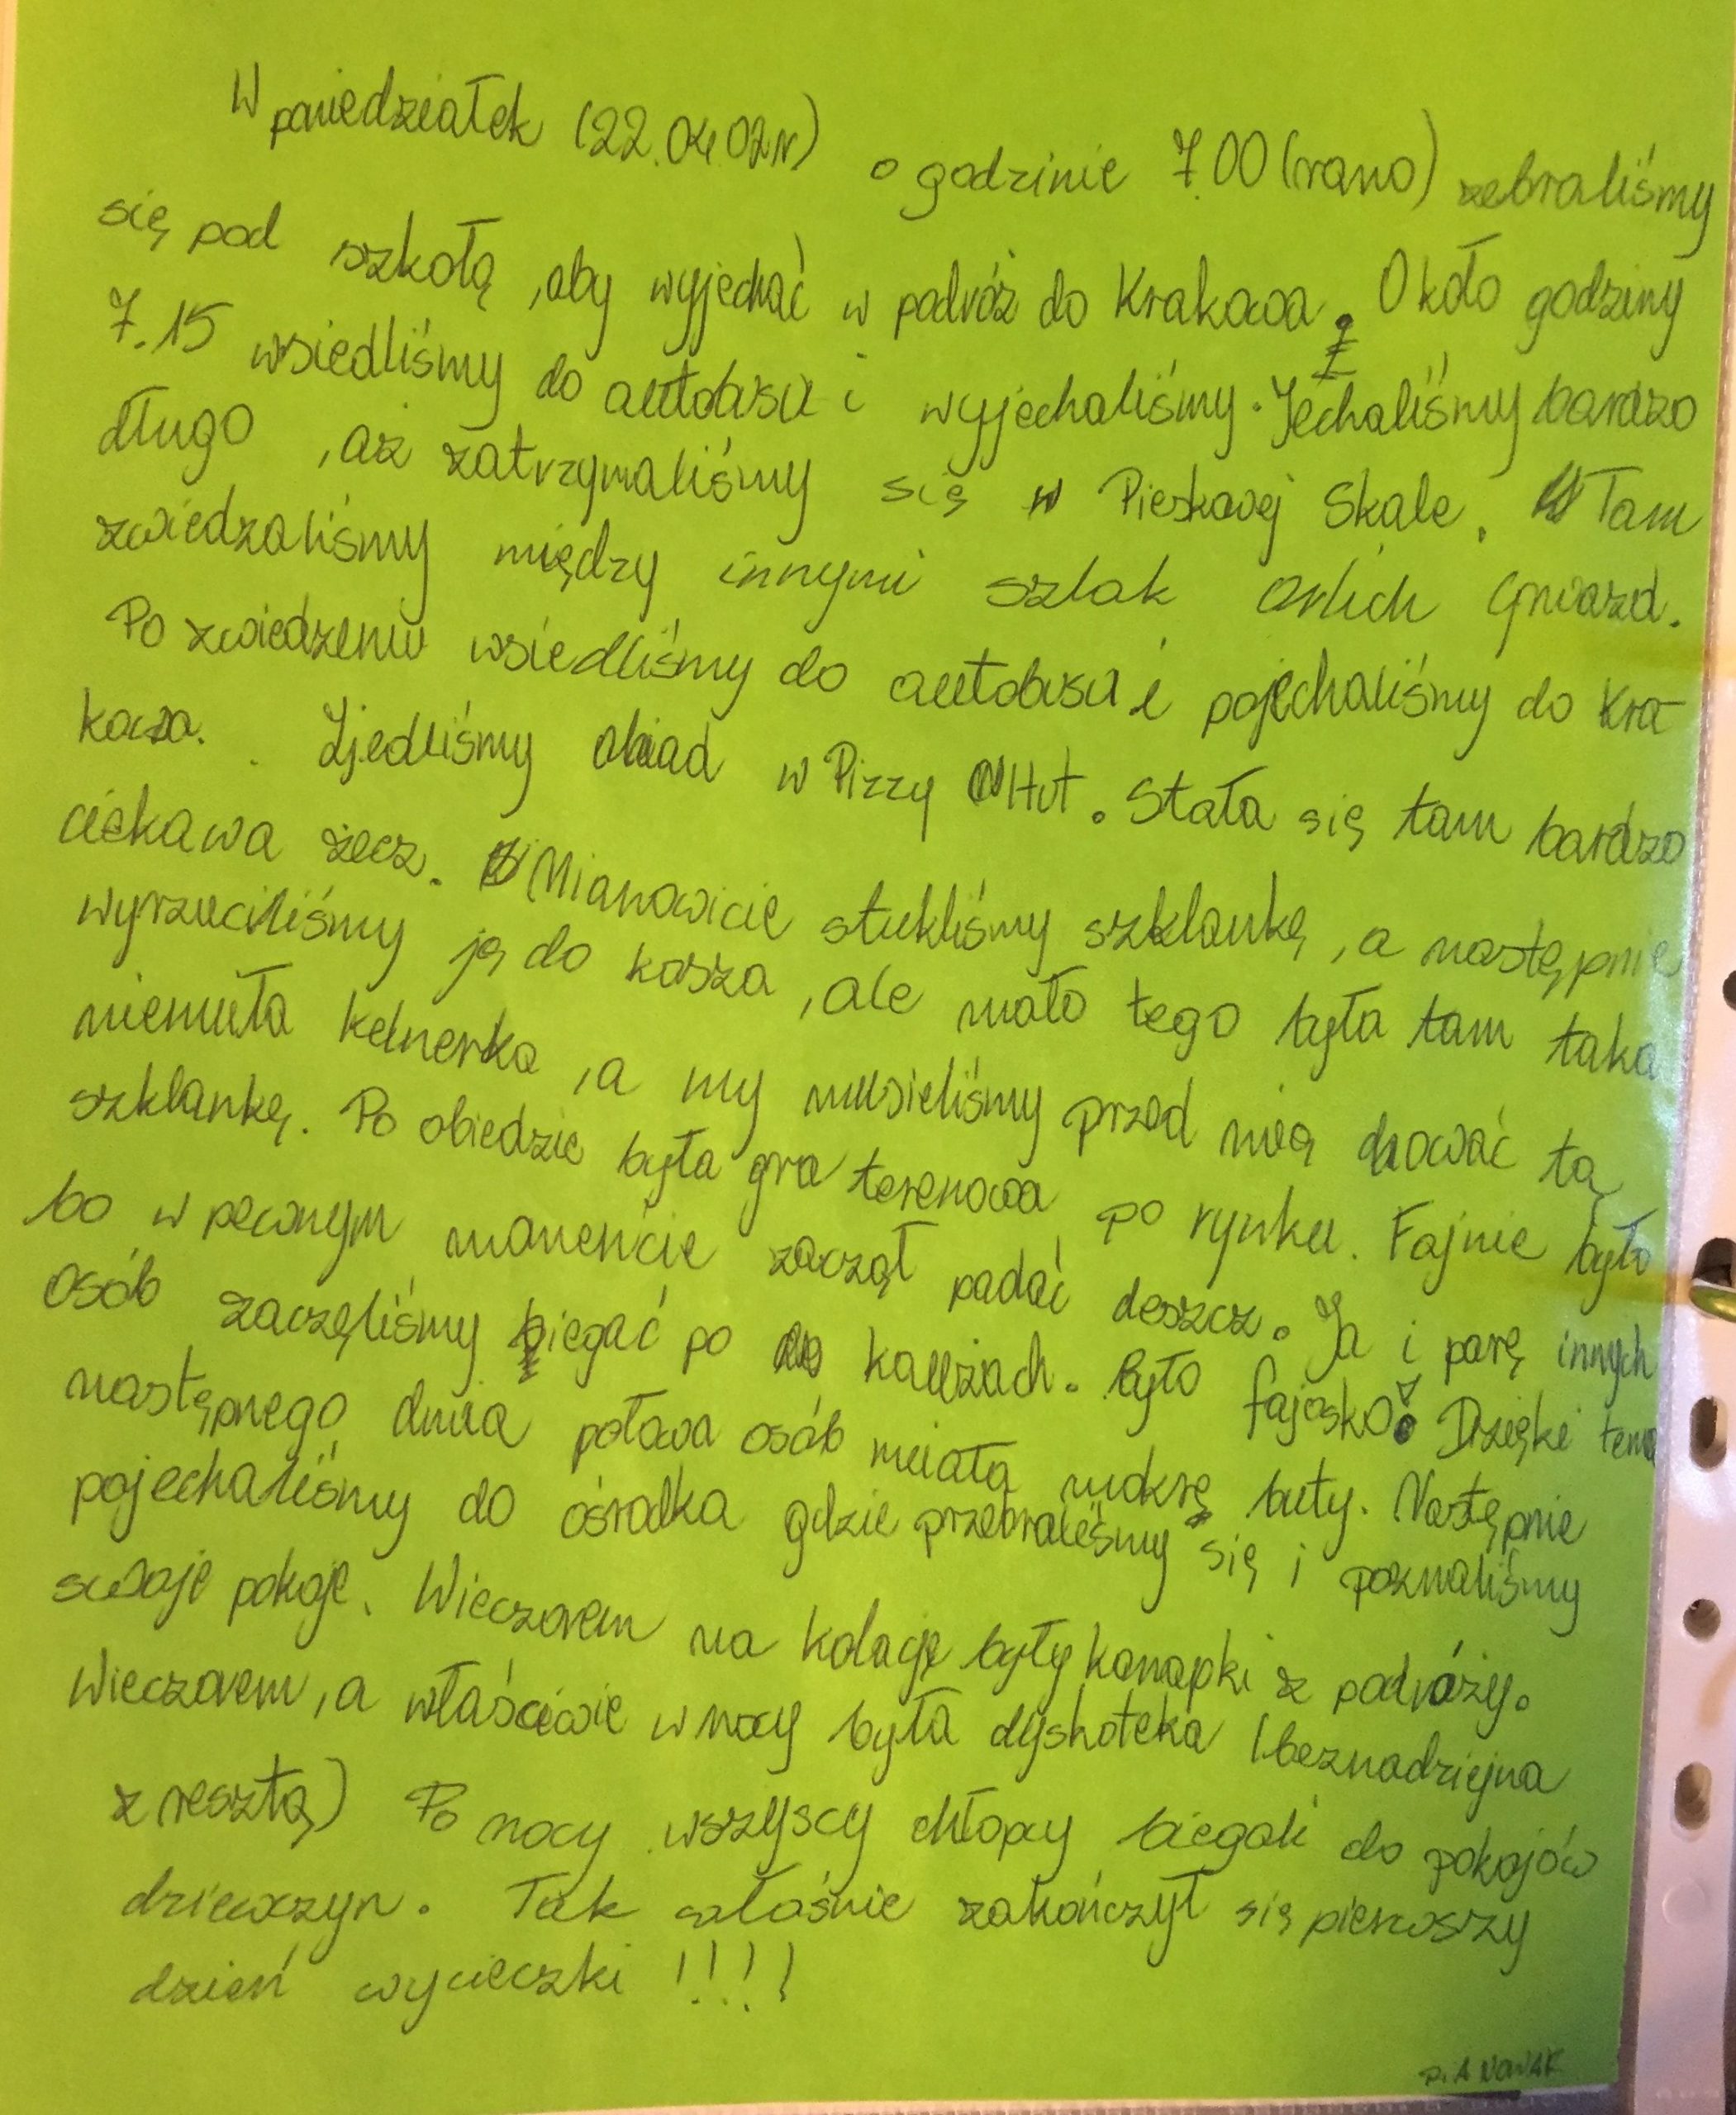 W poniedziałek (22.04.02r) o godzinie 7.00 (rano) zebraliśmy
się pod szkołą, aby wyjechać w podróż do Krakowa. Około godziny
7.15 wsiedliśmy do autobusu i wyjechaliśmy. Jechaliśmy bardzo
długo, aż zatrzymaliśmy się w Pieskowej Skale. Tam
zwiedzaliśmy między innymi szlak Orlich Gniazd.
Po zwiedzeniu wsiedliśmy do autobusu i pojechaliśmy do Kra-
kowa. Zjedliśmy obiad w Pizzy Hut. Stała się tam bardzo
ciekawa żecz. Mianowicie stukliśmy szklankę, a następnie
wyrzuciliśmy ją do kosza, ale mało tego była tam taka
niemiła kelnerka, a my musieliśmy przed nią chować tą
szklankę. Po obiedzie była gra terenowa po rynku. Fajnie było
bo w pewnym momencie zaczął padać deszcz. Ja i parę innych
osób zaczęliśmy biegać po kałużach. Było fajosko! Dzięki temu
następnego dnia połowa osób miała mokrę buty. Następnie
pojechaliśmy do ośrodka gdzie przebraliśmy się i poznaliśmy
swoje pokoje. Wieczorem na kolację były kanapki z podróży.
Wieczorem, a właściwie w nocy była dyskoteka (beznadziejna
z resztą) Po nocy wszyscy chłopcy biegali do pokojów
dziewczyn. Tak właśnie zakończył się pierwszy
dzień wycieczki !!!!
P. A NOWAK